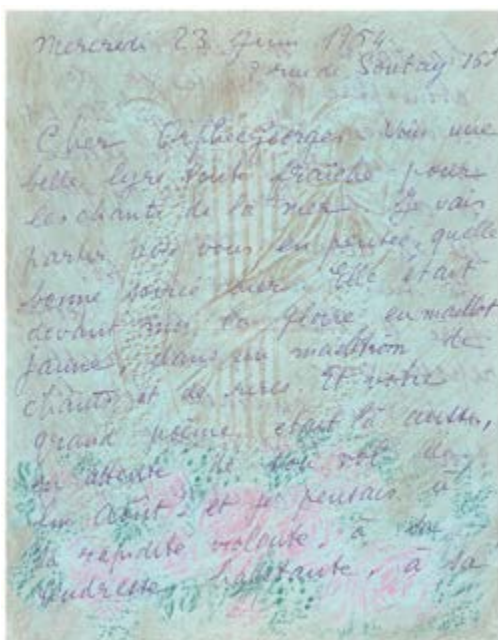 Mercredi 23 Juin 1954.
rue de 15e
Cher Orphée Georges. Voici une
belle lyre toute fraîche pour
les chants de la mer. Je vais
partir avec vous en pensée, quelle
bonne soirée hier. Elle était
devant moi la gloire en maillot
jaune, dans un de
chants et de rires. Et votre
grand poème était là aussi,
en attente de son vol de
fin Août. et je pensais à
sa rapidité volante, à sa
tendresse haletante, à sa